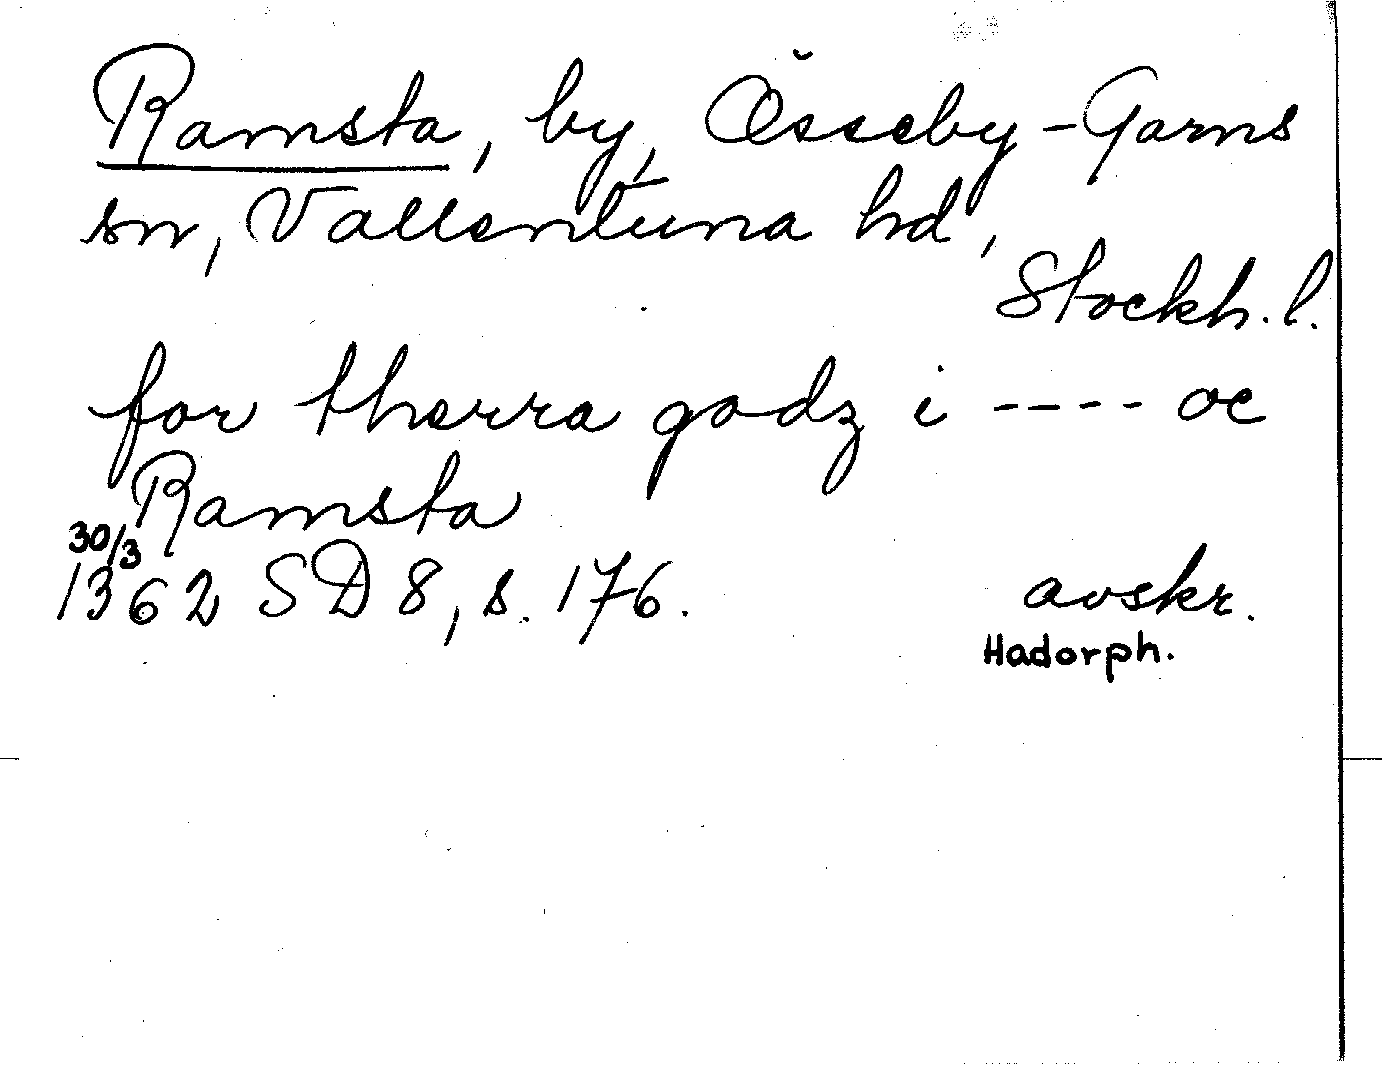 Ramsta, by, Össeby-Garns
sn, Vallentuna hd,
Stockh. l.
for therra godz i ---- oc
Ramsta
30/3
1362 SD 8, s. 176. avskr.
Hadorph.